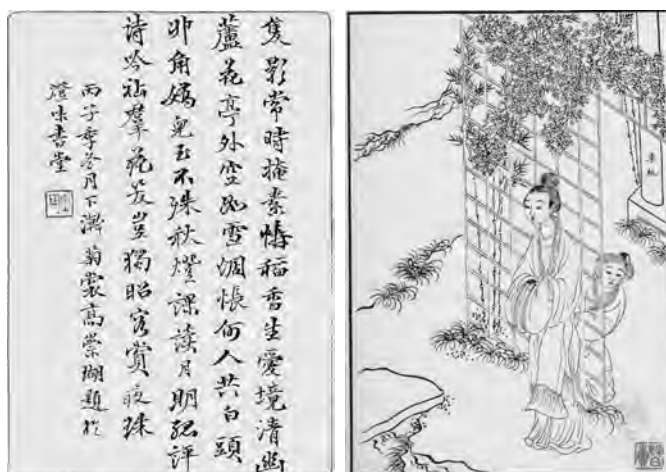 隻影常時掩素幬稻香生愛境清幽
蘆花亭外空飛雪惆悵何人共白頭
丱角嬌兒玉不殊秋燈課讀月明孤評
詩吟社羣花豈獨昭容賞夜珠
丙子季冬月下澣菊裳高崇瑚題於
味書堂
李紈